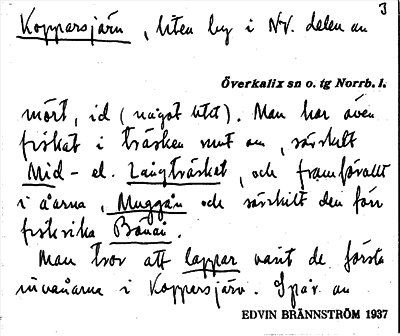 3
Koppersjärv, liten by i NV. delen av
Överkalix sn o. tg Norrb. l.
mört, id (något litet). Man har även
fiskat i träsken runt om, särskilt
Mid- el. Långträsket, och framförallt
i åarna, Muggån och särskilt den förr
fiskrika Bönåi.
Man tror att lappar varit de första
invånarna i Koppersjärv. Spår av
EDVIN BRÄNNSTRÖM 1937